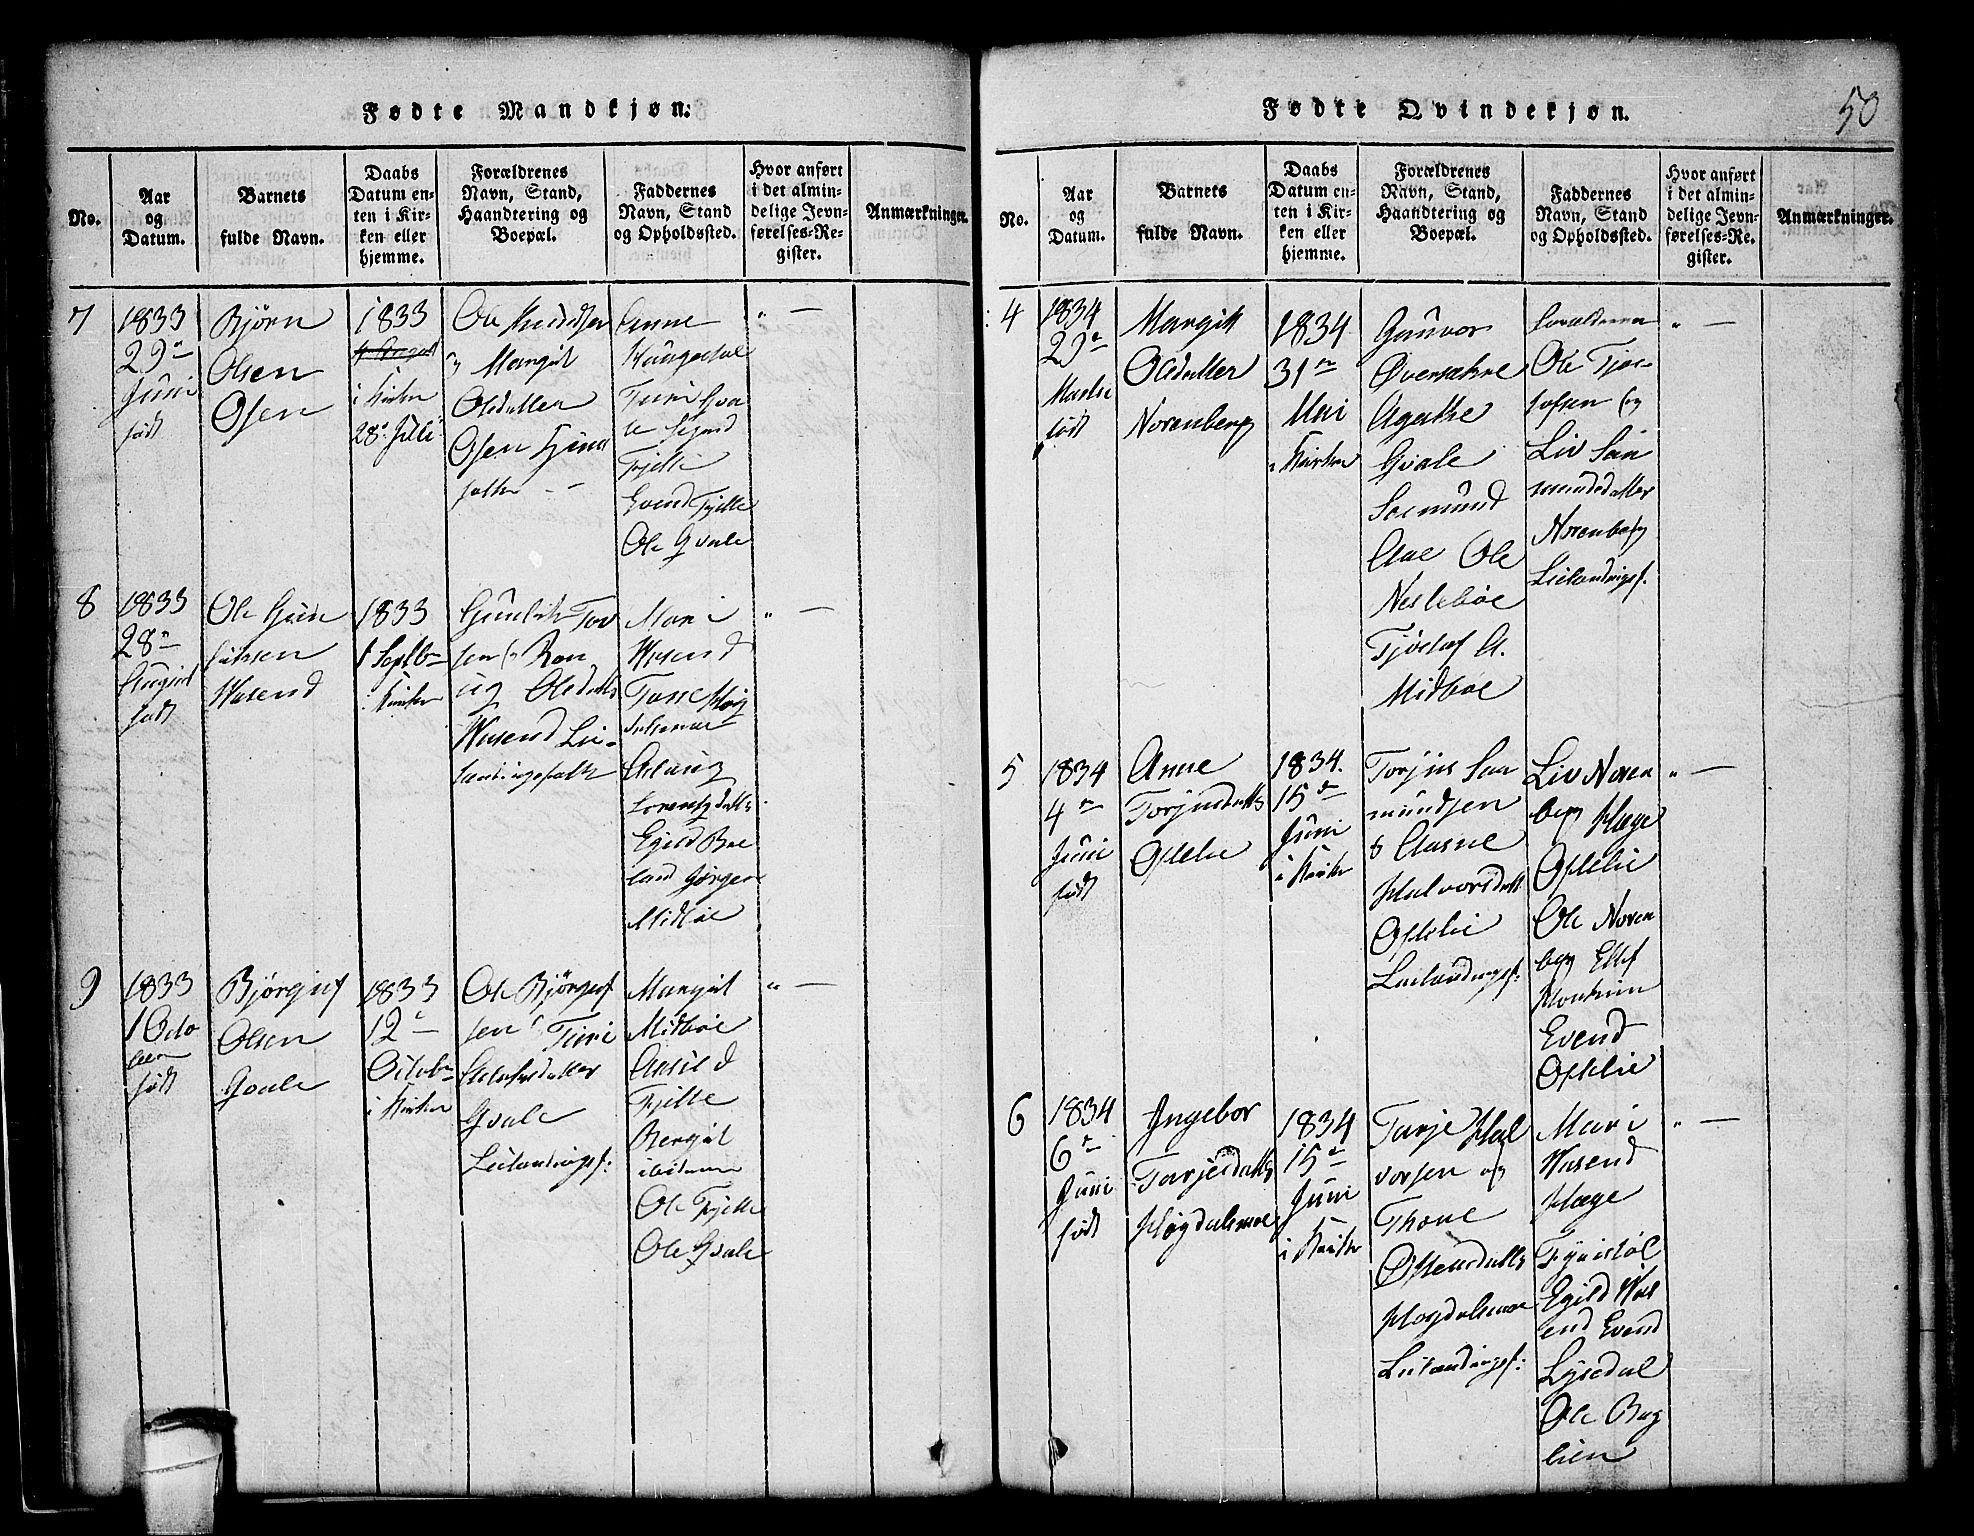 Fødte Mandkjøn:
No.
Aar
og
Datum.
Barnets
fulde Navn.
Daabs
Datum en-
ten i Kir-
ken eller
hjemme.
Forældrenes
Navn, Stand,
Haandtering og
Boepæl.
Faddernes
Navn, Stand
og Opholdssted.
Hvor anført
i det almin-
delige Jevn-
førelses-Re-
gister.
Anmærkninger.
7
1833
29de
Juni
født
Bjørn
Olsen
Osen
1833
i Kirken
28de Juli
Ole
og Margit
Olsdatter
Osen
folk
Anne
Turi Gva
le Sigurd
Fjelle
Evend Fjelle
Ole Gvale
" —
8
1833
28de
August
født
Ole Gun
liksen
Wasend
1833
1 Septbr
i Kirken
Gunlik Tov
sen og Ron
nug Olsdatter
Wasend Lei-
lændingsfolk
Mari
Wasend
Tone Høg
dalsmoe
Aslaug
Egild Boe
land Jørgen
Midbøe
" —
9
1833
1 Octo
ber
født
Bjørguf
Olsen
Gvale
1833
12te
Octobr
i Kirken
Ole Bjørguf
sen & Turi
Gvale
Leilændingsf:
Margit
Midbøe
Fjelle
Bergit
ibidem
Ole Fjelle
Ole Gvale
" —
Fødte Qvindekjøn.
50
No.
Aar
og
Datum.
Barnets
fulde Navn.
Daabs
Datum en-
ten i Kir-
ken eller
hjemme.
Forældrenes
Navn, Stand,
Haandtering og
Boepæl.
Faddernes
Navn, Stand
og Opholdssted.
Hvor anført
i det almin-
delige Jevn-
førelses-Re-
gister.
Anmærkninger.
4
1834
29de
Martii
født
Margit
Olsdatter
Norenberg
1834
31te
Mai
i Kirken
Gunvor
Agathe
Gvale
Soemund
Aae Ole
Neslebøe
Tjøstof A.
Midbøe
Forældrene
Ole Tjos-
tofsen og
Liv Søn
mundsdatter
Norenberg
Leilændingsf.
" —
5
1834
4de
Juni
født
Anne
Torjusdatter
Ofslie
1834.
15de
Juni
i Kirken
Torjus Søn
mundsen
& Aasne
Halvorsdatt
Ofslie
Leilændingsf:
Liv Noren
berg Hæge
Ofslie
Ole Noren
berg Ellef
Evend
Ofslie
" —
6
1834
6te
Juni
født
Ingebor
Tarjesdatter
Høgdalsmoe
1834
15de
Juni
i Kirken
Tarje Hal
vorsen og
Thone
Høgdalsmoe
Leilændingsf:
Mari
Wasend
Hæge
Egild Was
end Evend
Lysedal
Ole Bag
lien
" —